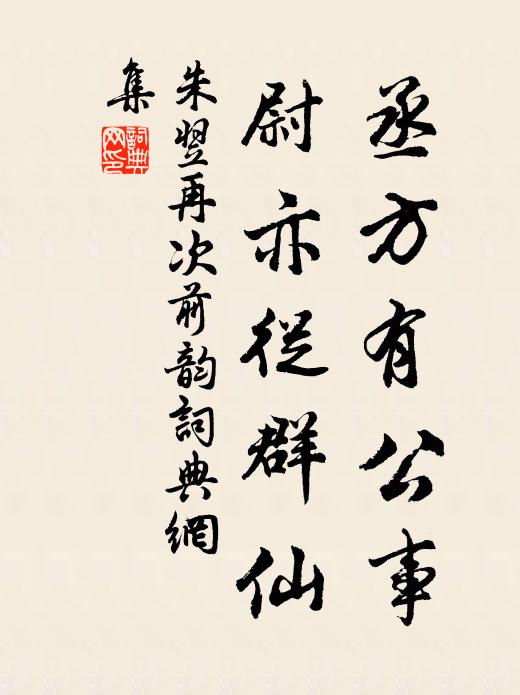 丞方有公事
尉亦從群仙
朱翌再次前韵詞典網
集
詞典網印